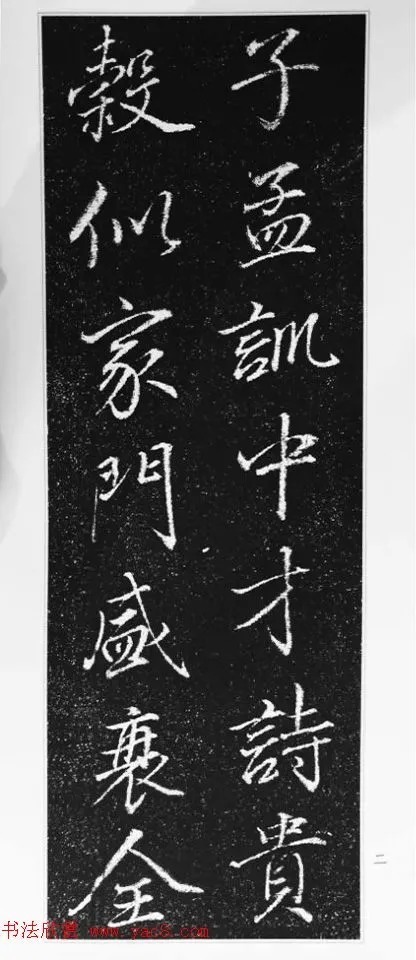 子孟訓中才詩貴
穀似家門盛衰全
二
书法欣赏 www.yac8.com